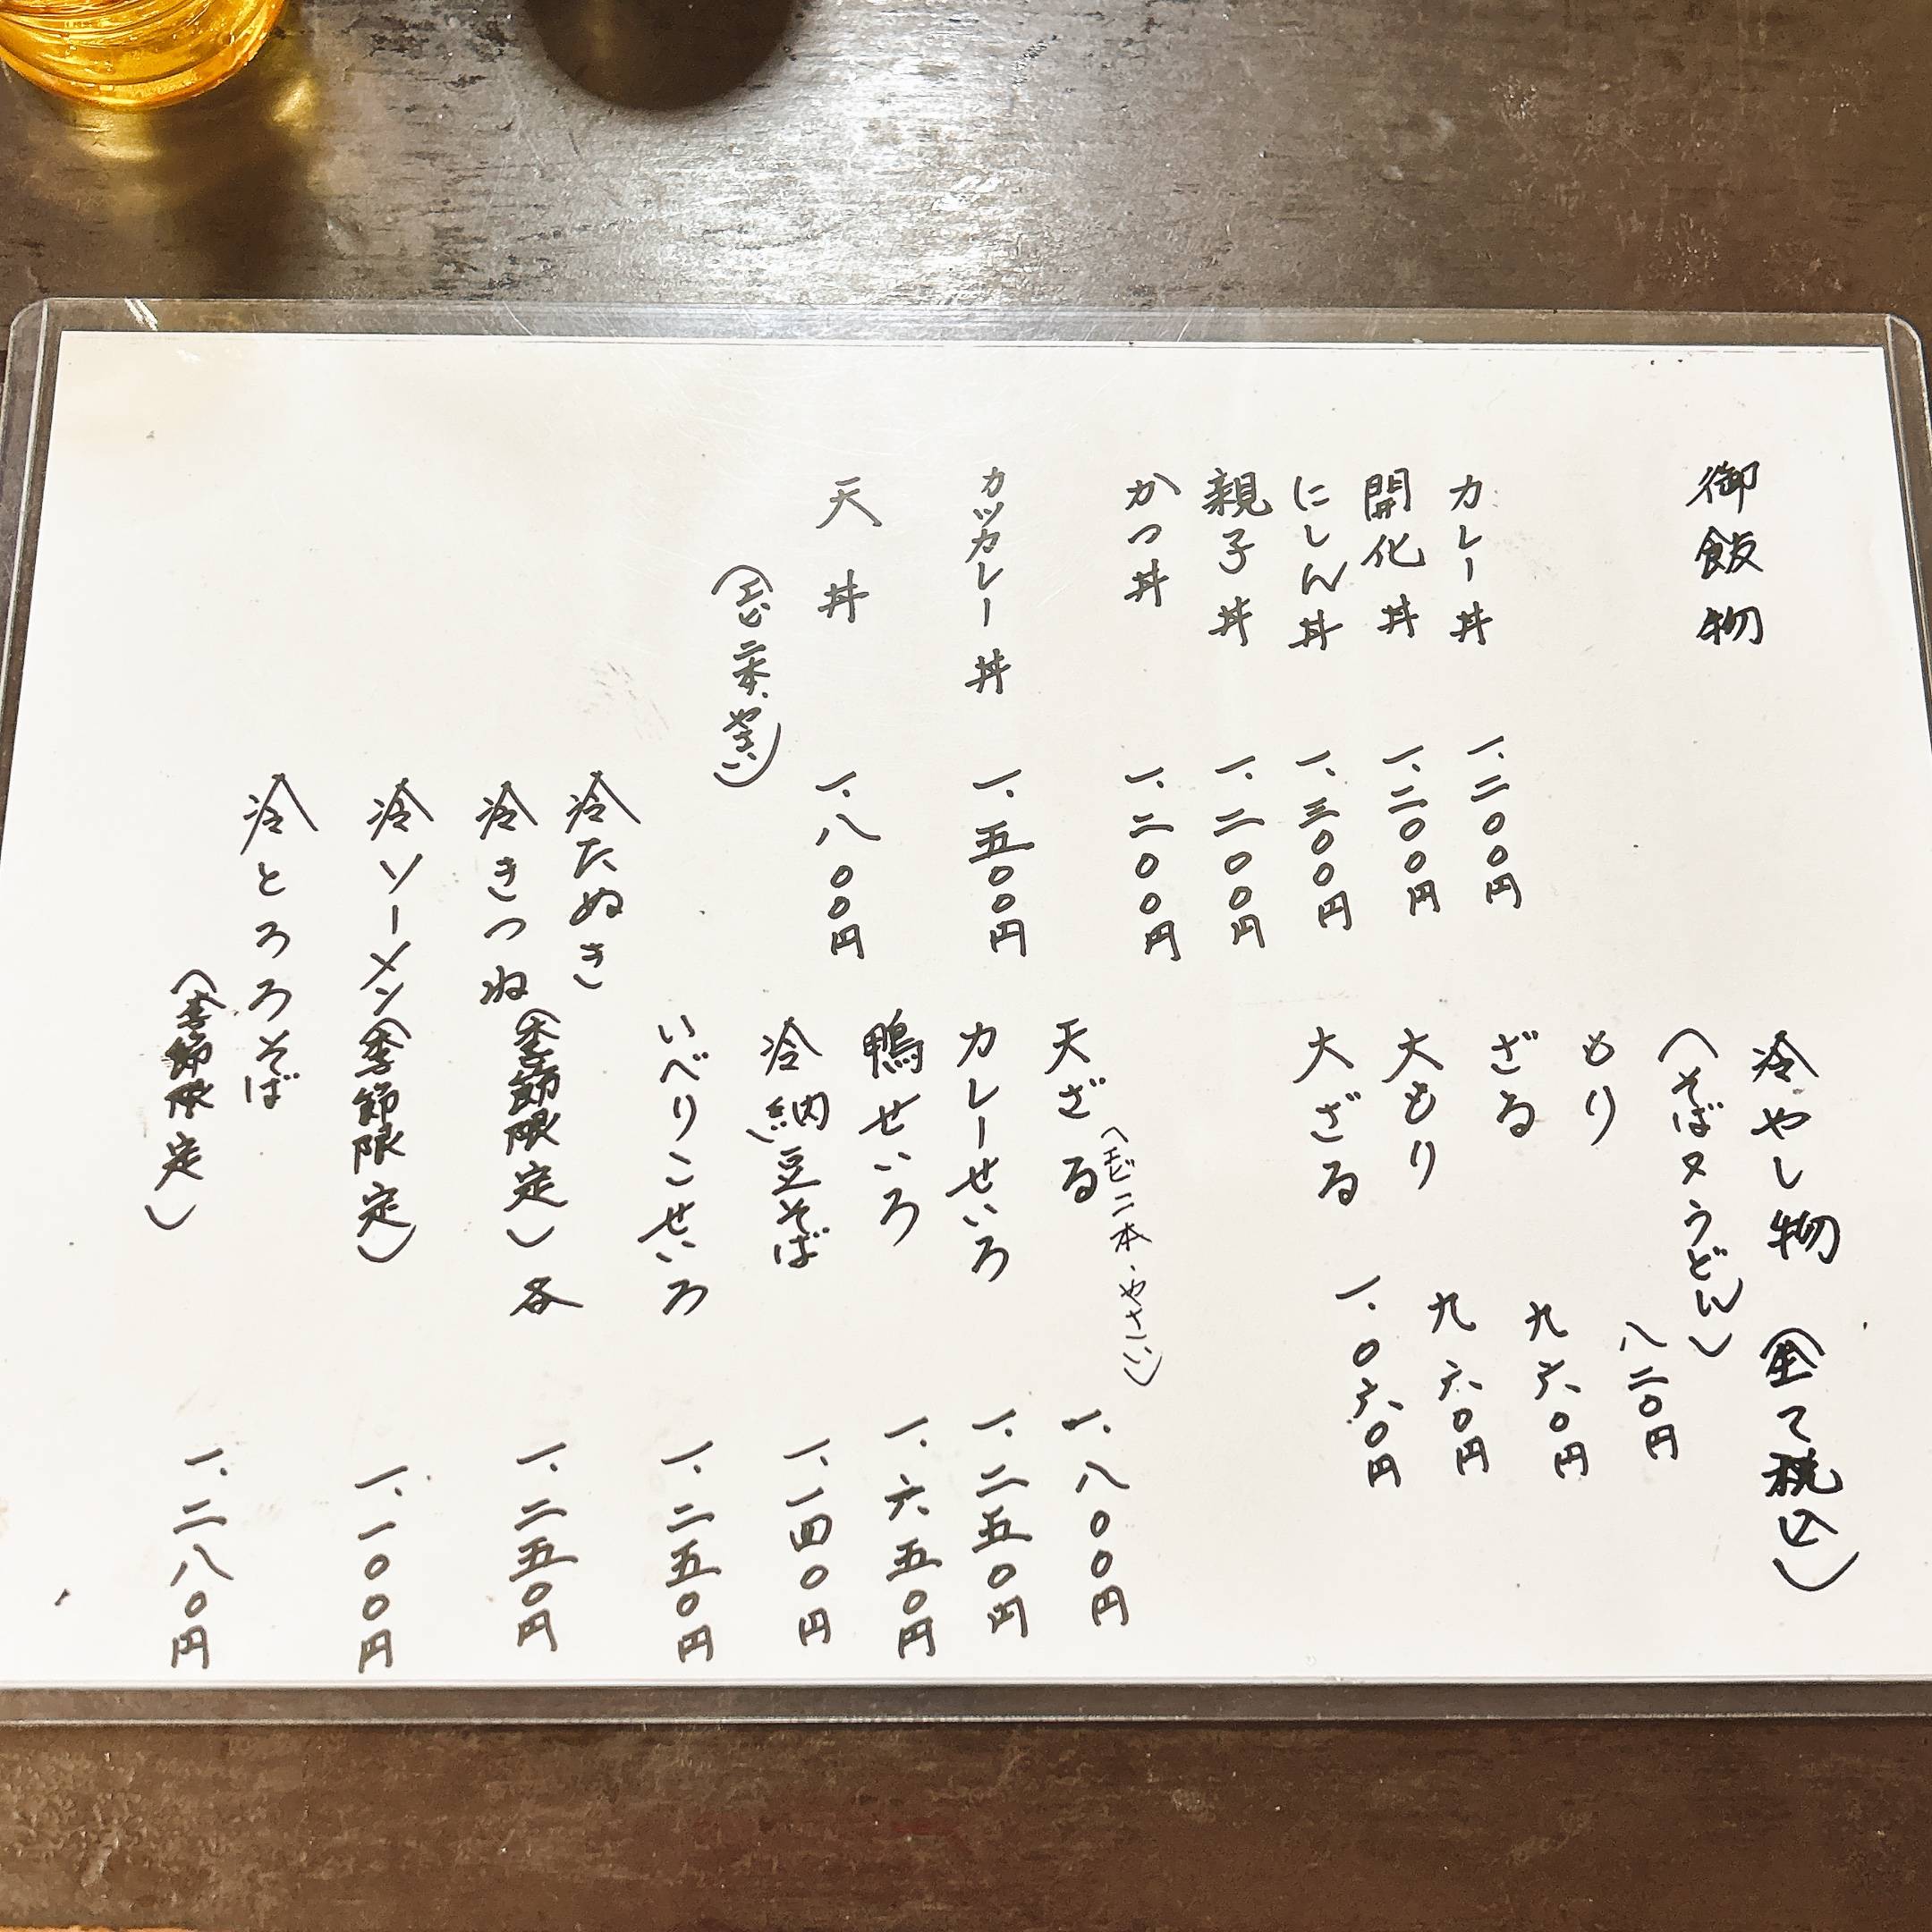 御飯物
カレー丼 一、二〇〇円
開化丼 一、二〇〇円
にしん丼 一、三〇〇円
親子丼 一、二〇〇円
かつ丼 一、二〇〇円
カツカレー丼 一、五〇〇円
天丼 一、八〇〇円
(エビ二本、やさい)
冷やし物 (全て税込)
(そば又うどん)
もり 八二〇円
ざる 九六〇円
大もり 九六〇円
大ざる 一、〇六〇円
(エビ二本、やさい)
天ざる 一、八〇〇円
カレーせいろ 一、二五〇円
鴨せいろ 一、六五〇円
冷納豆そば 一、一四〇円
いべりこせいろ 一、二五〇円
冷たぬき
冷きつね(季節限定)各 一、二五〇円
冷ソーメン(季節限定) 一、一〇〇円
冷とろろそば
(季節限定) 一、二八〇円